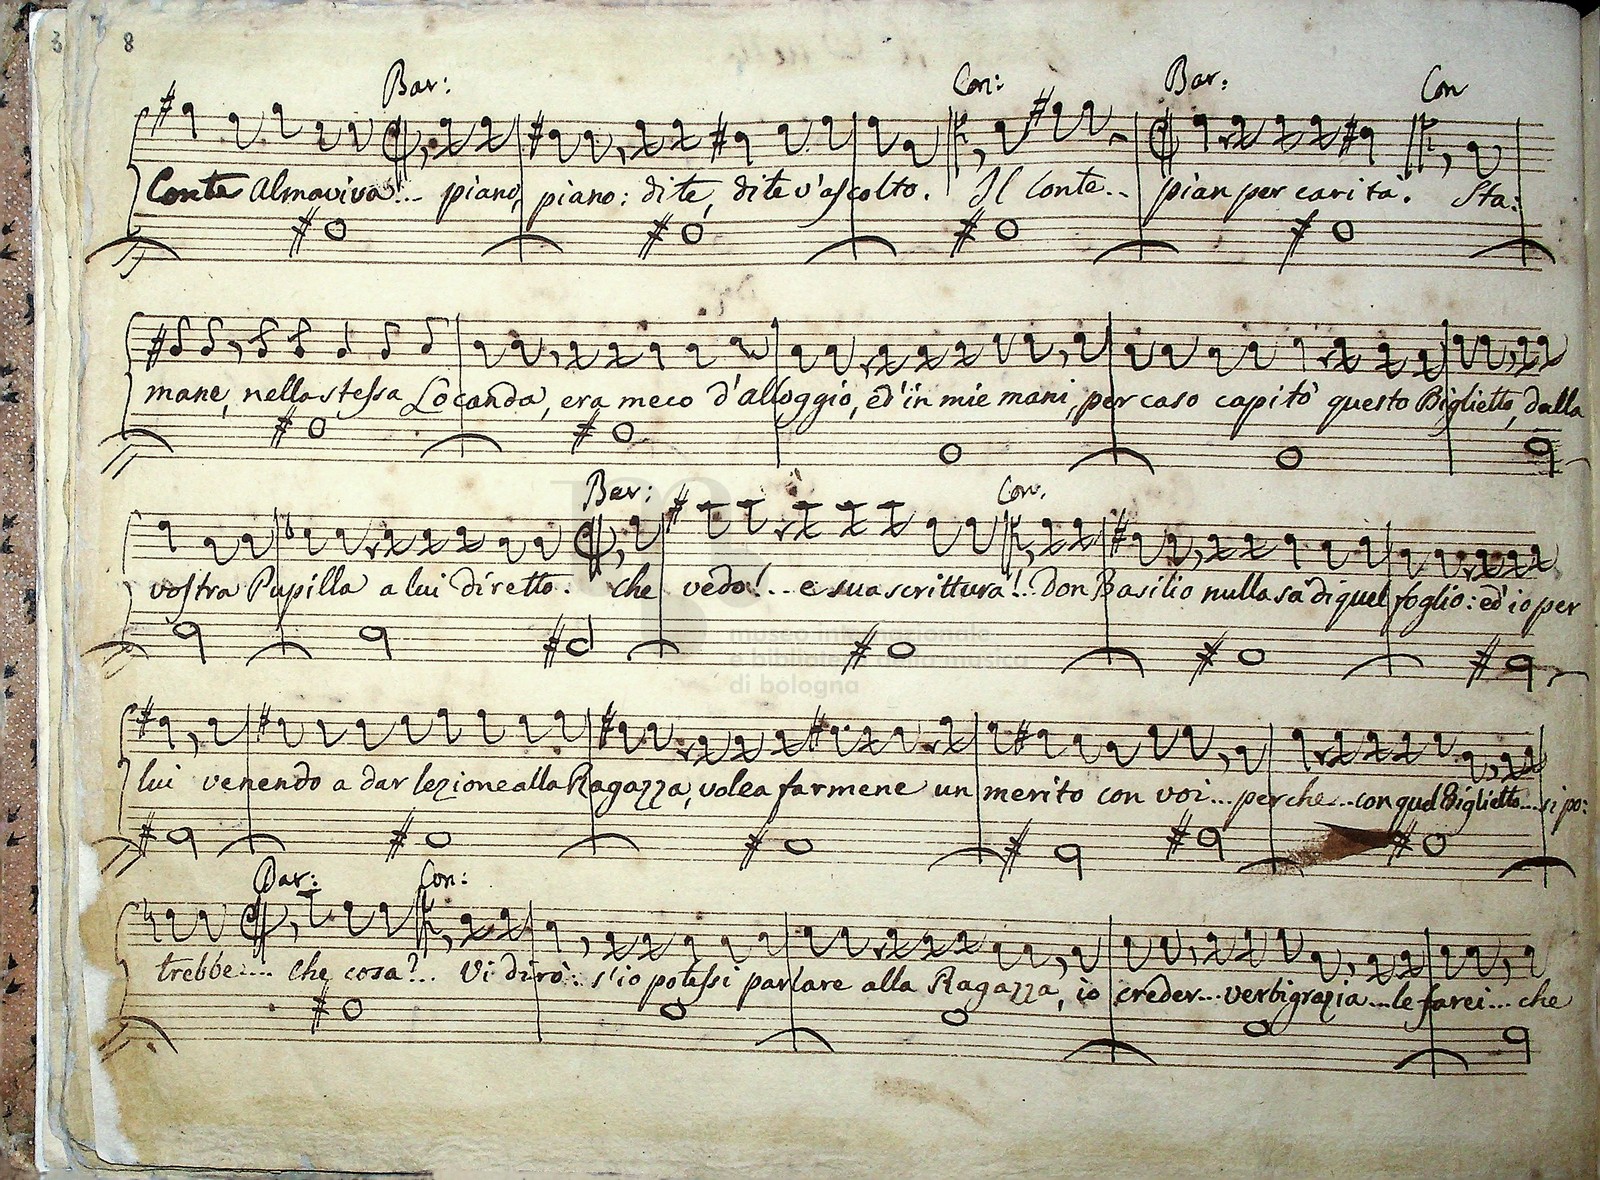 3 8
Bar: Con: Bar: Con
Conte Almaviva!... piano, piano: dite, dite v'ascolto. Il Conte... pian per carita. Sta:
mane, nella stessa Locanda, era meco d'alloggio, ed' in mie mani, per caso capitò questo Biglietto, dalla
Bar: Con.
vostra Pupilla a lui diretto. che vedo!... e sua scrittura!.. Don Basilio nulla sa di quel foglio: ed' io per
museo internazionale
e biblioteca della musica
di bologna
lui venendo a dar lezione alla Ragazza, volea farmene un merito con voi... perche... con quel Biglietto... si po:
Bar: Con:
trebbe.... che cosa?.. Vi dirò.. s'io potessi parlare alla Ragazza, io creder... verbigrazia... le farei... che